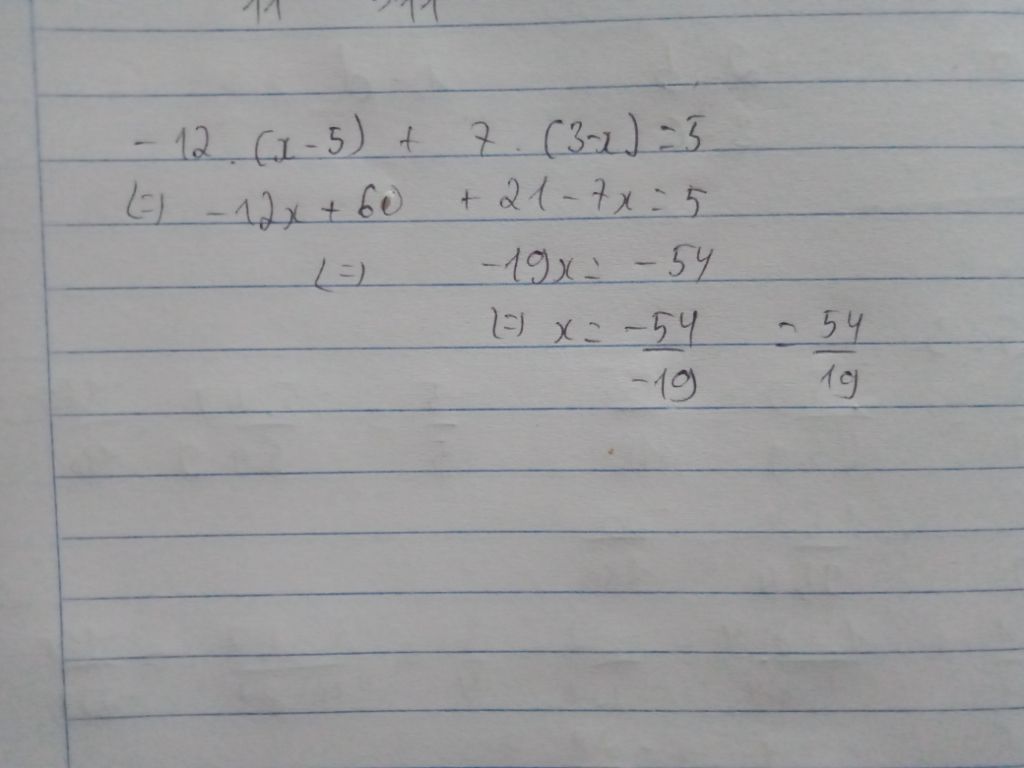 11 11
- 12 . (x - 5) + 7 . (3 - x) = 5
(=) - 12x + 60 + 21 - 7x = 5
(=) -19x = - 54
(=) x = -54/-19 = 54/19